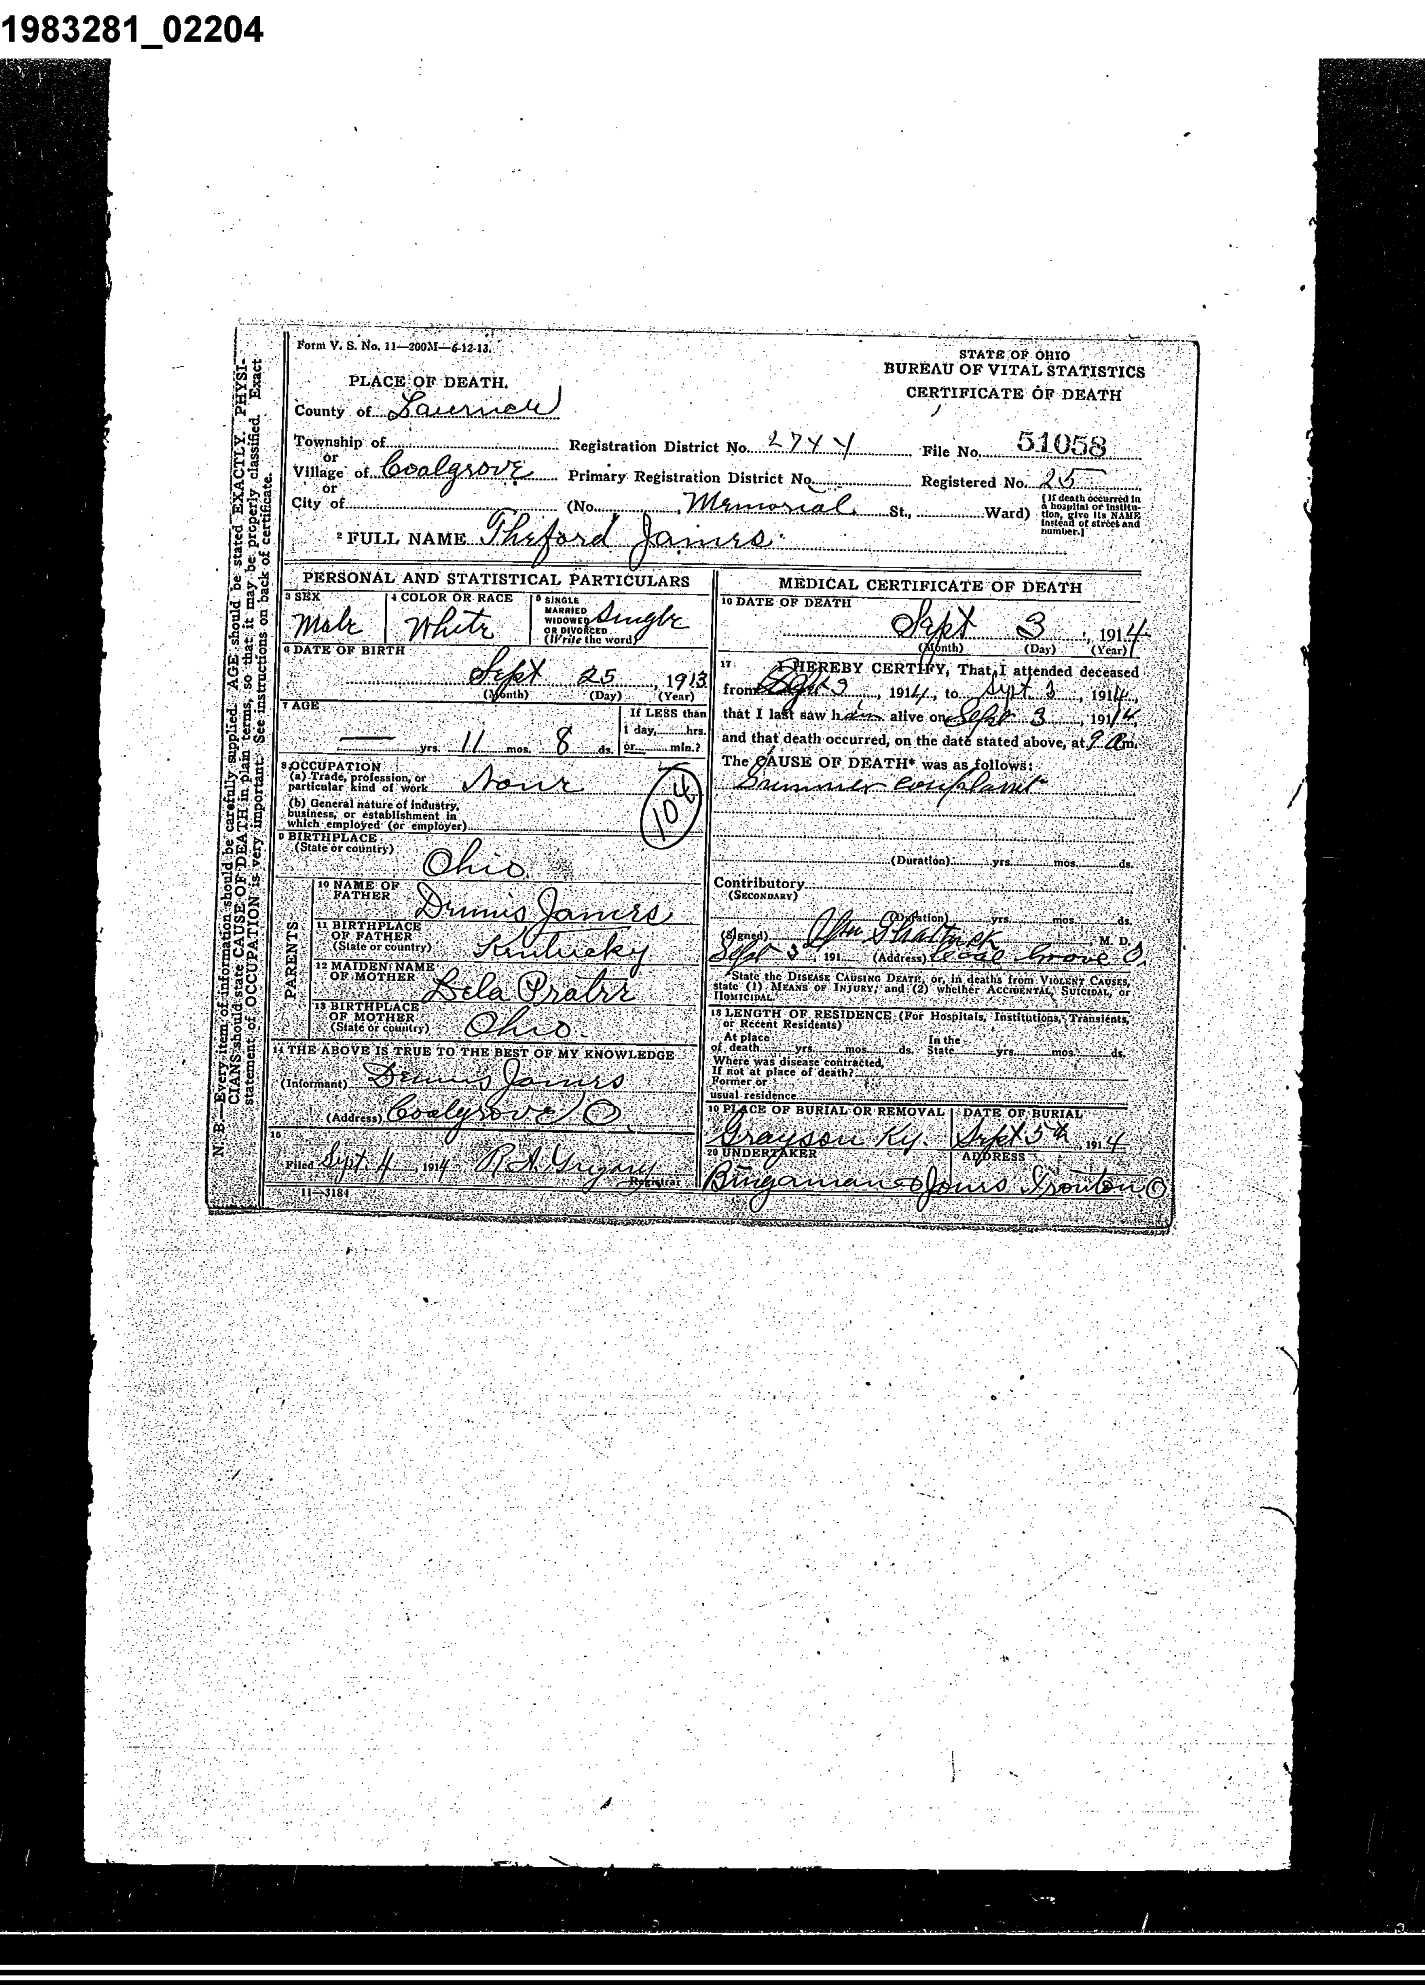 1983281_02204
Form V. S. No. 11—200M—6-12-13.
STATE OF OHIO
BUREAU OF VITAL STATISTICS
CERTIFICATE OF DEATH
PLACE OF DEATH.
County of Lawrence
Township of Registration District No. 2744 File No. 51058
or
Village of Coalgrove Primary Registration District No. Registered No. 25
or
City of (No. Memorial St., Ward) [If death occurred in a hospital or institution, give its NAME instead of street and number.]
2 FULL NAME Theford James
PERSONAL AND STATISTICAL PARTICULARS
3 SEX Male
4 COLOR OR RACE White
5 SINGLE MARRIED WIDOWED OR DIVORCED (Write the word) Single
6 DATE OF BIRTH
Sept 25, 1913
(Month) (Day) (Year)
7 AGE
— yrs. 11 mos. 8 ds.
If LESS than
1 day, hrs.
or min.?
8 OCCUPATION
(a) Trade, profession, or
particular kind of work None
(b) General nature of industry,
business, or establishment in
which employed (or employer)
104
9 BIRTHPLACE
(State or country)
Ohio
PARENTS
10 NAME OF
FATHER Dennis James
11 BIRTHPLACE
OF FATHER
(State or country) Kentucky
12 MAIDEN NAME
OF MOTHER Lela Prater
13 BIRTHPLACE
OF MOTHER
(State or country) Ohio
14 THE ABOVE IS TRUE TO THE BEST OF MY KNOWLEDGE
(Informant) Dennis James
(Address) Coalgrove O.
15
Filed Sept 4 1914 R A Grigory
Registrar
11—3184
MEDICAL CERTIFICATE OF DEATH
16 DATE OF DEATH
Sept 3, 1914
(Month) (Day) (Year)
17 I HEREBY CERTIFY, That I attended deceased
from Sept 3, 1914, to Sept 3, 1914,
that I last saw him alive on Sept 3, 1914,
and that death occurred, on the date stated above, at 9 am.
The CAUSE OF DEATH* was as follows:
Summer complaint
(Duration) yrs. mos. ds.
Contributory
(SECONDARY)
(Duration) yrs. mos. ds.
(Signed) Shattuck M. D.
Sept 3 191 (Address) Coal Grove O.
*State the DISEASE CAUSING DEATH, or, in deaths from VIOLENT CAUSES,
state (1) MEANS OF INJURY; and (2) whether ACCIDENTAL, SUICIDAL, or
HOMICIDAL.
18 LENGTH OF RESIDENCE (For Hospitals, Institutions, Transients,
or Recent Residents)
At place In the
of death yrs. mos. ds. State yrs. mos. ds.
Where was disease contracted,
If not at place of death?
Former or
usual residence
19 PLACE OF BURIAL OR REMOVAL DATE OF BURIAL
Grayson Ky. Sept 5th, 1914
20 UNDERTAKER ADDRESS
Bingaman & Jones Ironton O
N. B.—Every item of information should be carefully supplied. AGE should be stated EXACTLY. PHYSI-
CIANS should state CAUSE OF DEATH in plain terms, so that it may be properly classified. Exact
statement of OCCUPATION is very important. See instructions on back of certificate.